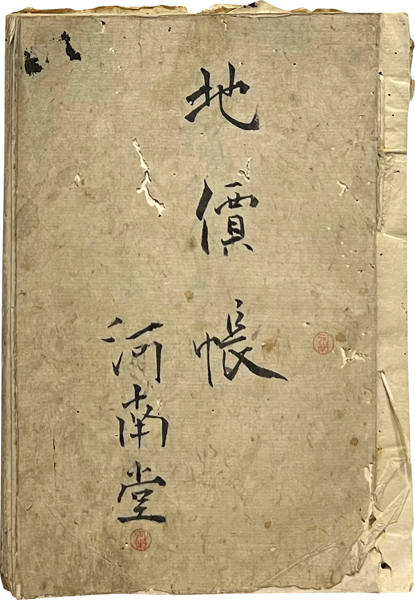 地價帳
河南堂